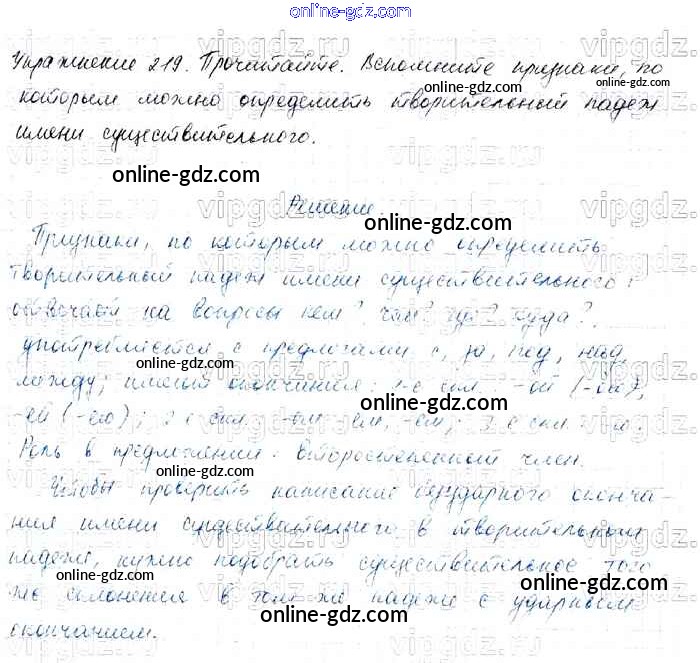 online-gdz.com
Упражнение 219. Прочитайте. Вспомните признаки, по
которым можно определить творительный падеж
имени существительного.
online-gdz.com
Решение
online-gdz.com
Признаки, по которым можно определить
творительный падеж имени существительного:
online-gdz.com
отвечает на вопросы кем? чем? где? куда?,
online-gdz.com
употребляется с предлогами с, за, под, над,
online-gdz.com
между; имеют окончания: 1-е скл. -ой (-ою),
online-gdz.com
-ей (-ею); 2-е скл. -ом, -ем, 3-е скл.
online-gdz.com
Роль в предложении - второстепенный член.
online-gdz.com
Чтобы проверить написание безударного оконча-
online-gdz.com
ния имени существительного в творительном
online-gdz.com
падеже, нужно подобрать существительное того
online-gdz.com
же склонения в том же падеже с ударным
online-gdz.com
окончанием.